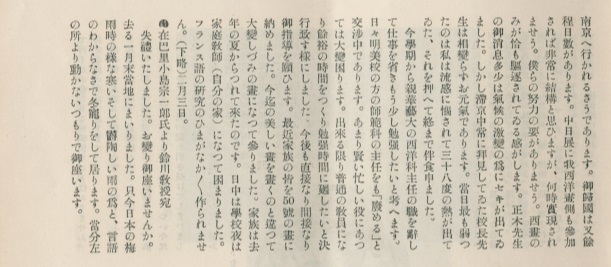 南京へ行かれるさうであります。御歸國は又餘
程日數があります。中日展に我西洋畫側も參加
されば非常に結構と思ひますが、何時實現され
ませう。僕らの努力の要がありませう。西畫の
みが恰も驅逐されてゐる感がします。正木先生
の御消息多少は氣候の激變の爲にセキが出てゐ
ました。しかし滯京中常に拜見してゐた校長先
生は相變らずお元氣であります。當日最も弱つ
たのは私は流感に惱されて三十八度の熱が出て
ゐた、それを押へて終まで伴食申しました。
今學期から親業藝大の西洋科主任の職を辭し
て仕事を省きもう少し勉強したいと考へます。
日々明美校の方の師範科の主任をも『廢める』と
交渉中であります。あまり賢い忙しい役にあつ
ては大變困ります。出來る限り普通の敎員にな
り餘裕の時間をつくり勉強時間に廻したいと決
行致す樣にしました。今後も直接なり間接なり
御指導を願ひます。最近家族の皆を50號の畫に
納めました。今迄の美しい畫を畫くのと違つて
大變しづみの畫になつて參りました。家族は去
年の夏からつれて來たのです。日中は學校夜は
家庭敎師(自分の家)になつて困まりました。
フランス語の研究のひまがなか〱作られませ
ん。(下略)二月三日。
在巴里小島宗一郎氏より鈴川敎授宛
失禮いたしました。お變り御座いませんか。
去る一月末當地にまいりました。只今日本の梅
雨時の樣な寒いそして鬱陶しい雨の爲と、言語
のわからなさで冬籠りをして居ります。當分左
の所より動かないつもりで御座います。